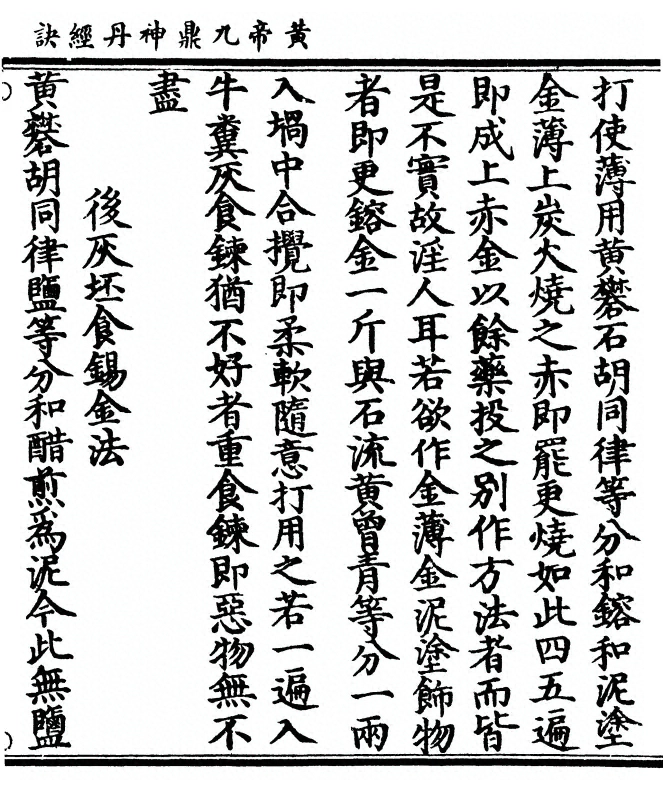 黃帝九鼎神丹經訣
打使薄用黃礬石胡同律等分和鎔和泥塗
金薄上炭火燒之赤即罷更燒如此四五遍
即成上赤金以餘藥投之別作方法者而皆
是不實故淫人耳若欲作金薄金泥塗飾物
者即更鎔金一斤與石流黃曾青等分一兩
入堝中合攪即柔軟隨意打用之若一遍入
牛糞灰食鍊猶不好者重食鍊即惡物無不
盡
後灰坯食錫金法
黃礬胡同律鹽等分和醋煎為泥今此無鹽